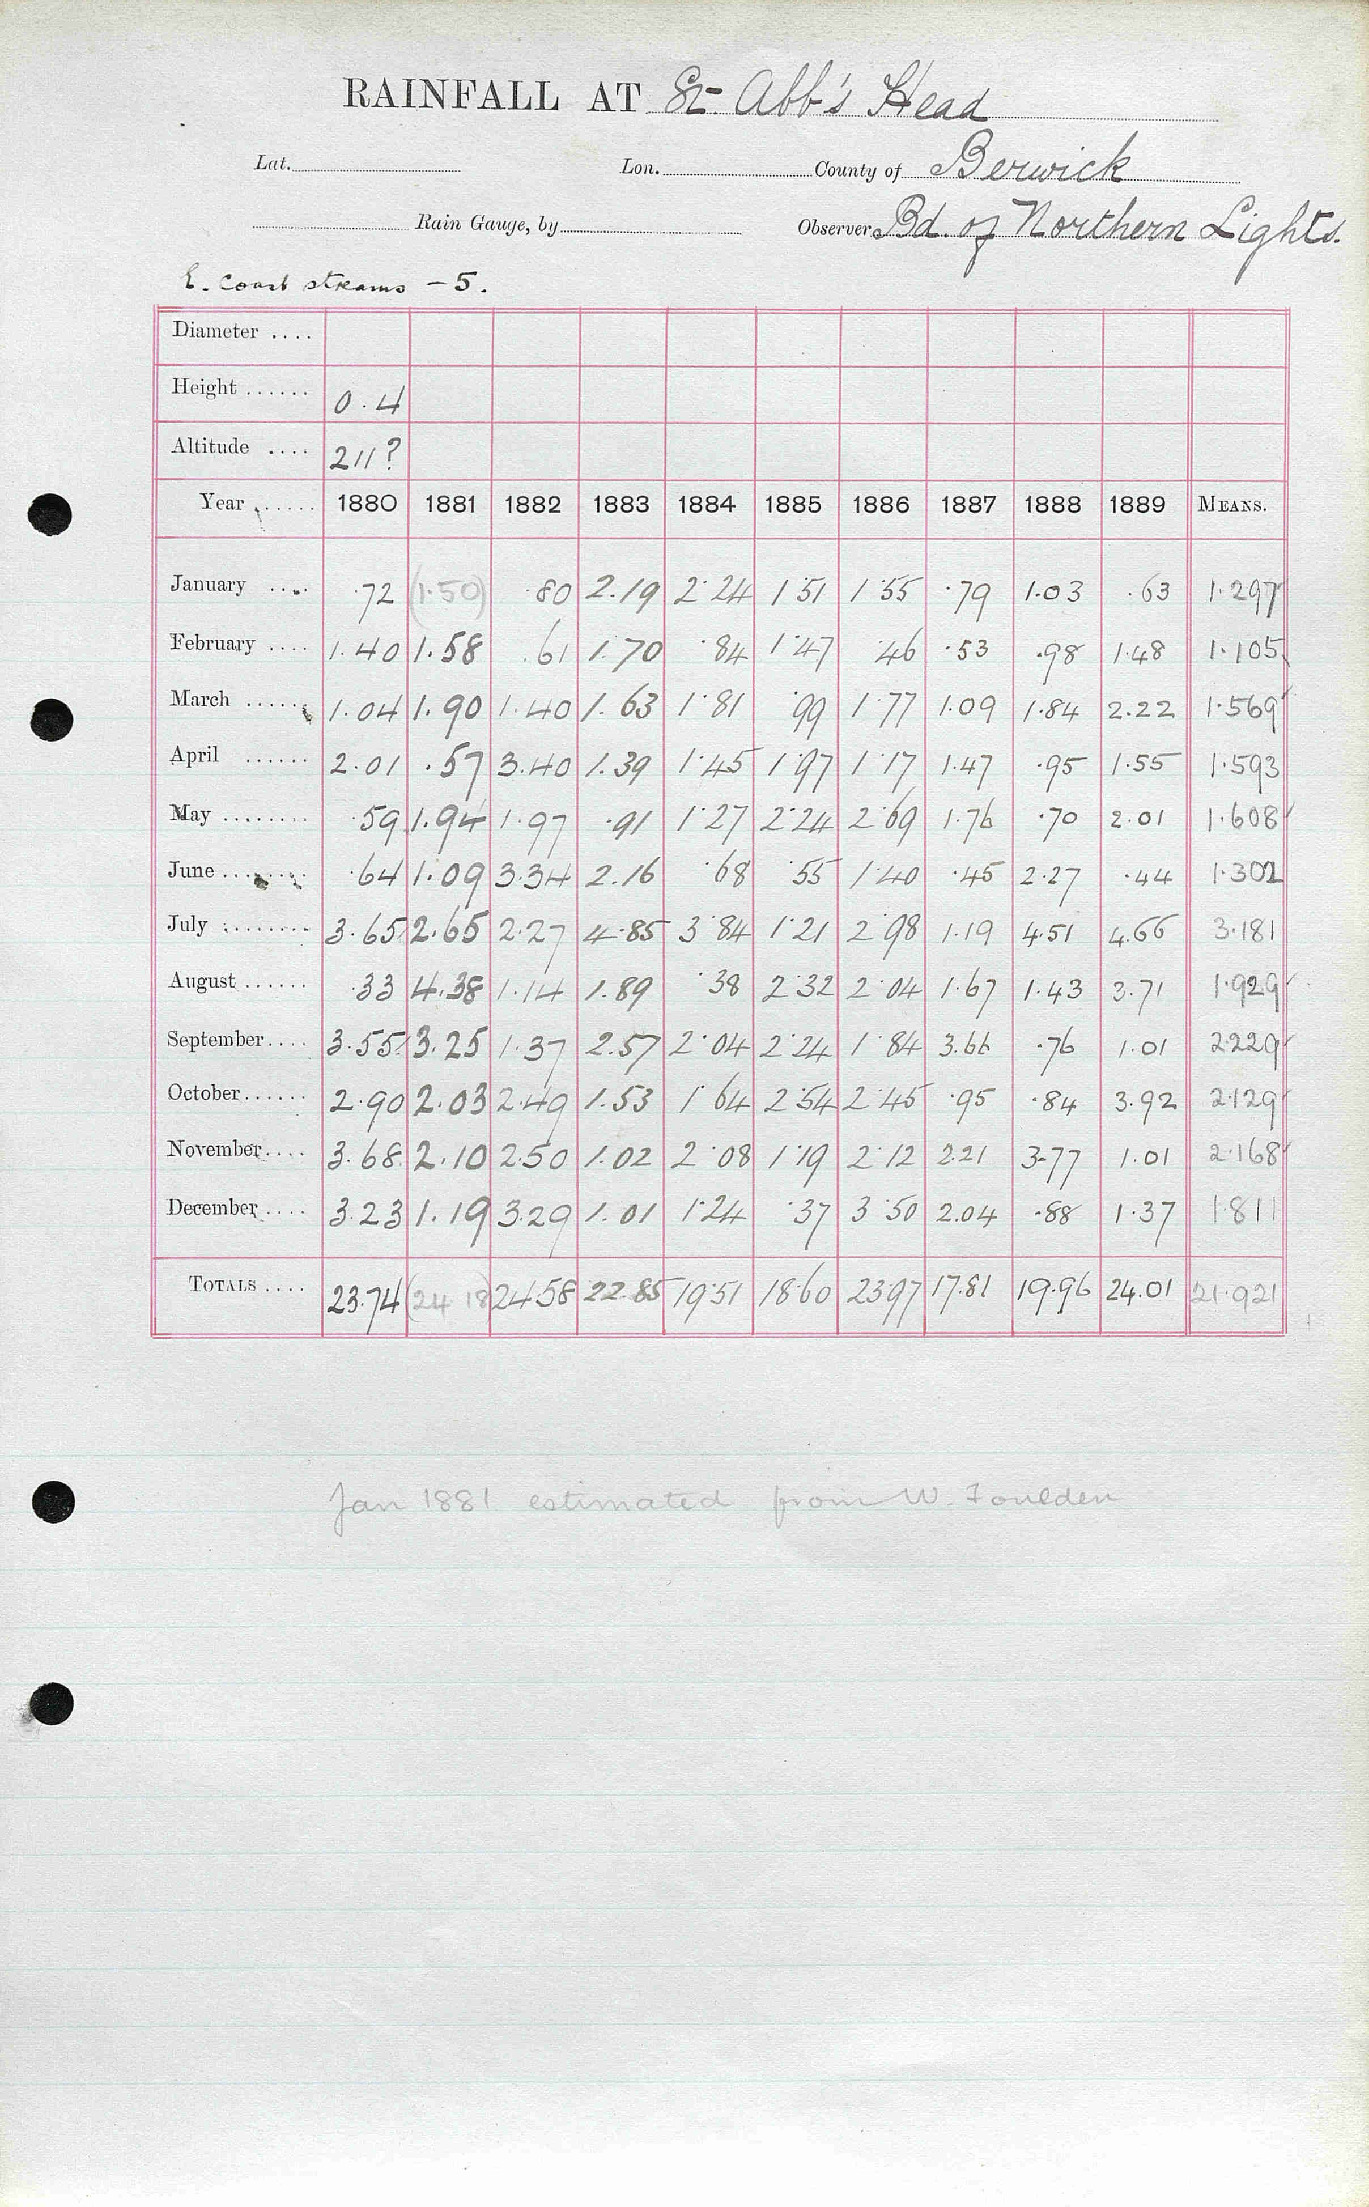 RAINFALL AT St. Abb's Head
Lat. Lon. County of Berwick
Rain Gauge, by Observer Bd. of Northern Lights.
E. Coast streams - 5.
Diameter ....
Height ...... 0.4
Altitude .... 211?
Year ...... 1880 1881 1882 1883 1884 1885 1886 1887 1888 1889 MEANS.
January .... .72 (1.50) .80 2.19 2.24 1.51 1.55 .79 1.03 .63 1.297
February .... 1.40 1.58 .61 1.70 .84 1.47 .46 .53 .98 1.48 1.105
March ...... 1.04 1.90 1.40 1.63 1.81 .99 1.77 1.09 1.84 2.22 1.569
April ...... 2.01 .57 3.40 1.39 1.45 1.97 1.17 1.47 .95 1.55 1.593
May ........ .59 1.94 1.97 .91 1.27 2.24 2.69 1.76 .70 2.01 1.608
June ........ .64 1.09 3.34 2.16 .68 .55 1.40 .45 2.27 .44 1.302
July ........ 3.65 2.65 2.27 4.85 3.84 1.21 2.98 1.19 4.51 4.66 3.181
August ...... .33 4.38 1.14 1.89 .38 2.32 2.04 1.67 1.43 3.71 1.929
September .... 3.55 3.25 1.37 2.57 2.04 2.24 1.84 3.66 .76 1.01 2.229
October ...... 2.90 2.03 2.49 1.53 1.64 2.54 2.45 .95 .84 3.92 2.129
November .... 3.68 2.10 2.50 1.02 2.08 1.19 2.12 2.21 3.77 1.01 2.168
December .... 3.23 1.19 3.29 1.01 1.24 .37 3.50 2.04 .88 1.37 1.811
TOTALS .... 23.74 (24.18) 24.58 22.85 19.51 18.60 23.97 17.81 19.96 24.01 21.921
Jan 1881 estimated from W. Foulden